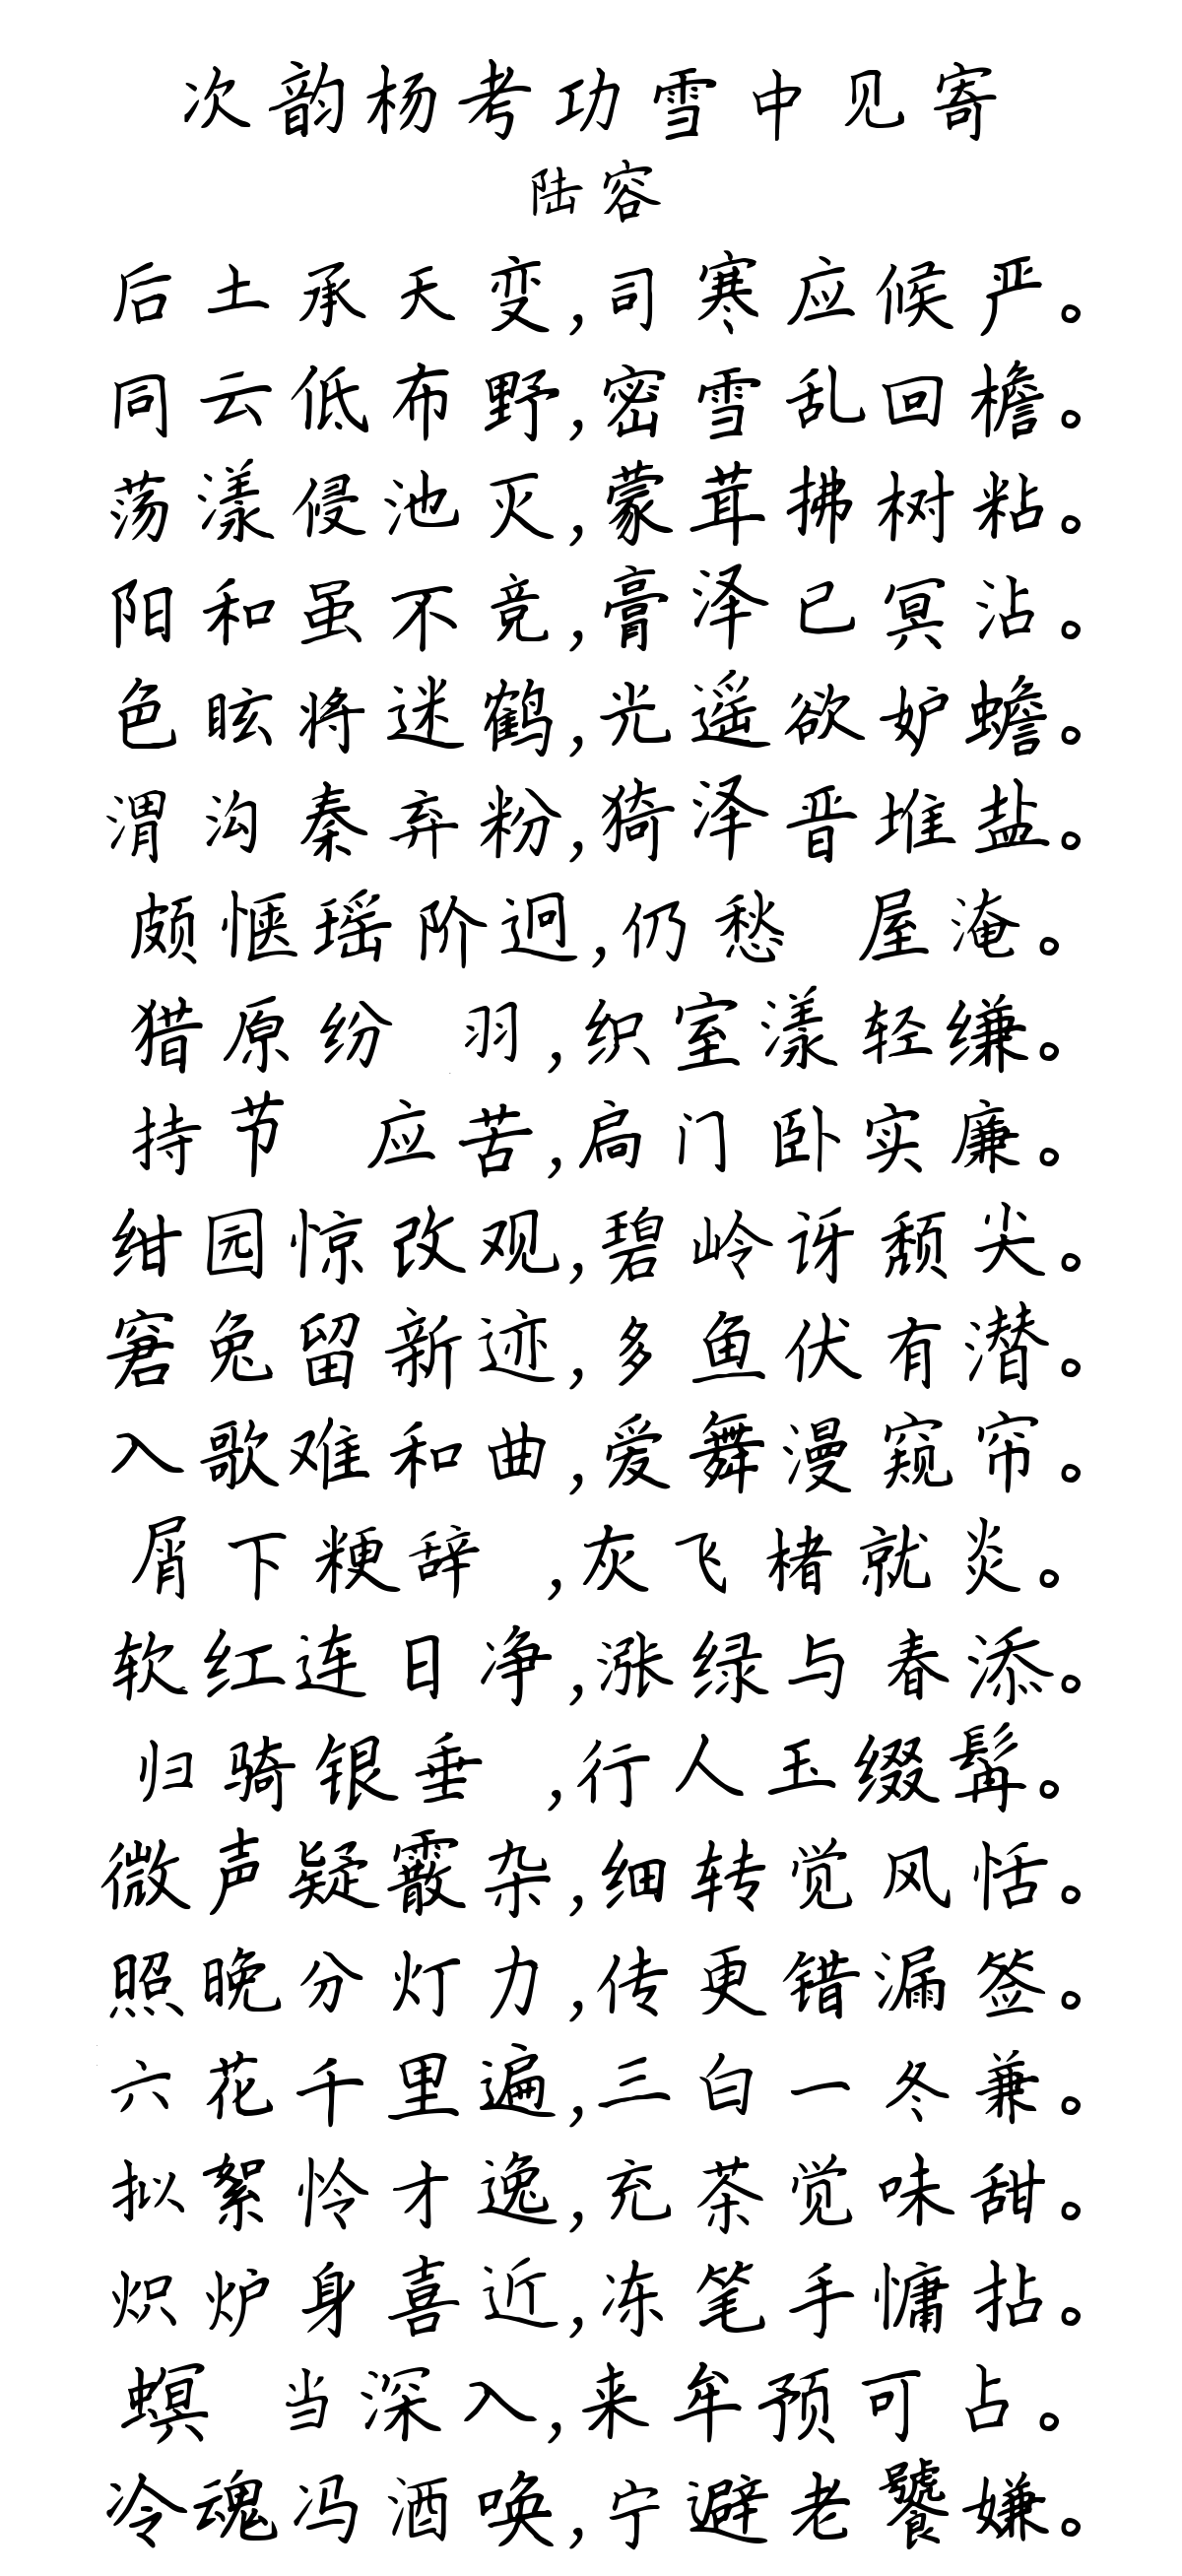 次韵杨考功雪中见寄
陆容
后土承天变,司寒应候严。
同云低布野,密雪乱回檐。
荡漾侵池灭,蒙茸拂树粘。
阳和虽不竞,膏泽已冥沾。
色眩将迷鹤,光遥欲妒蟾。
渭沟秦弃粉,猗泽晋堆盐。
颇惬瑶阶迥,仍愁 屋淹。
猎原纷 羽,织室漾轻缣。
持节 应苦,扃门卧实廉。
绀园惊改观,碧岭讶颓尖。
窘兔留新迹,多鱼伏有潜。
入歌难和曲,爱舞漫窥帘。
屑下粳辞 ,灰飞楮就炎。
软红连日净,涨绿与春添。
归骑银垂 ,行人玉缀髯。
微声疑霰杂,细转觉风恬。
照晚分灯力,传更错漏签。
六花千里遍,三白一冬兼。
拟絮怜才逸,充茶觉味甜。
炽炉身喜近,冻笔手慵拈。
螟 当深入,来牟预可占。
冷魂冯酒唤,宁避老饕嫌。